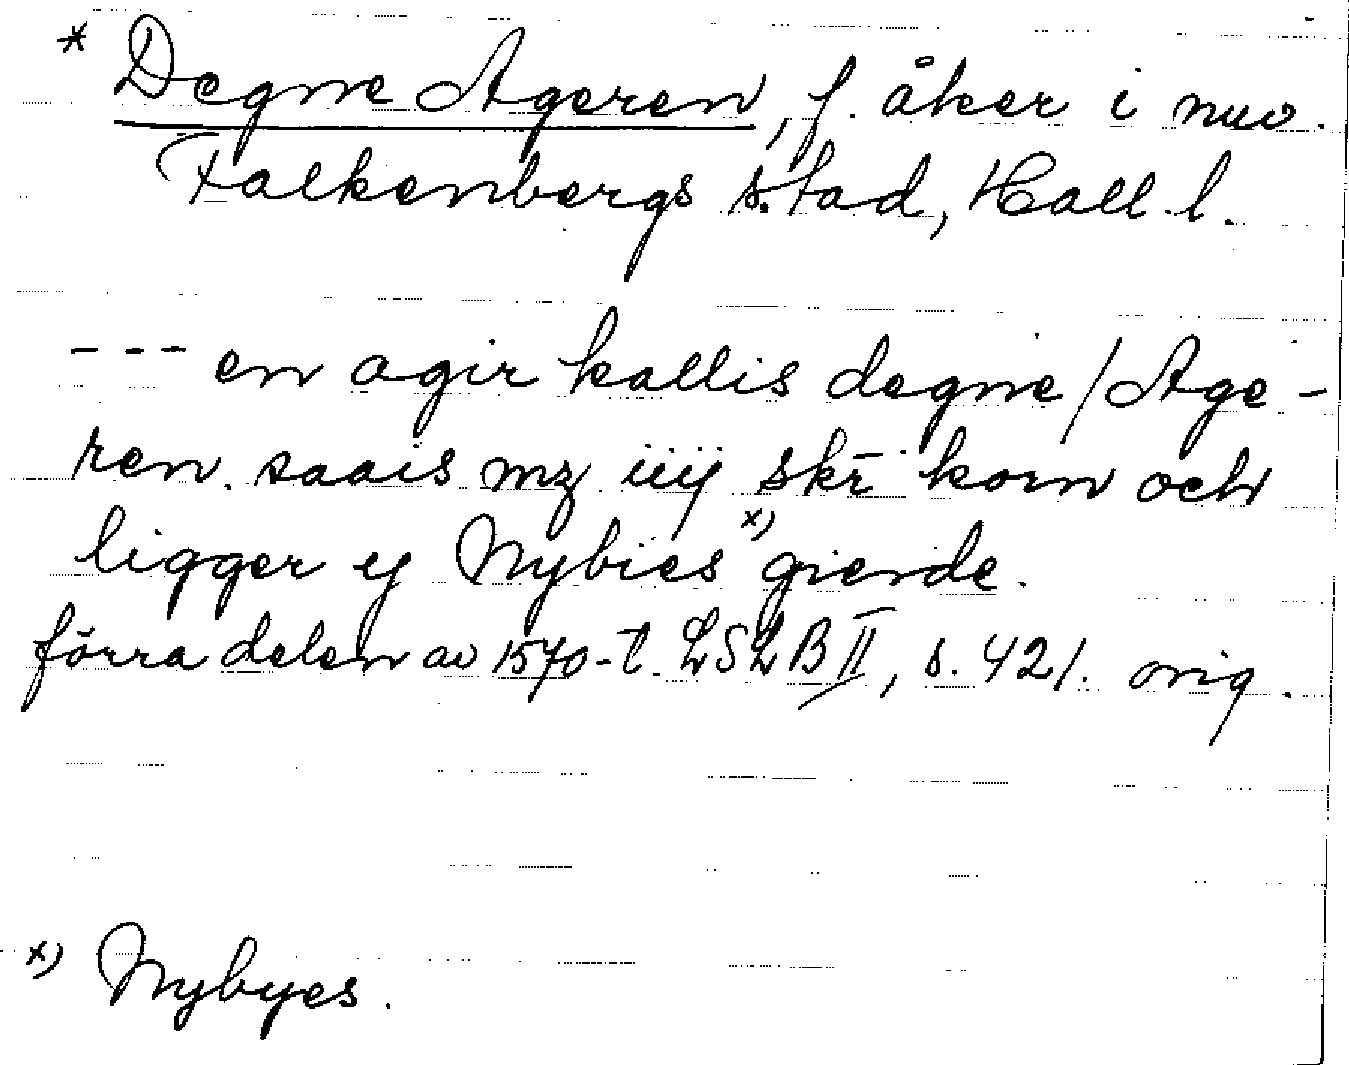 * Degne Ageren, f. åker i nuv.
Falkenbergs stad, Hall. l.
--- en agir kallis degne/Age-
ren. saais mz iiij skr̄ korn och
ligger ij Nybies x) gierde.
förra delen av 1570-t. LSLB II, s. 421. orig.
x) Nybyes.